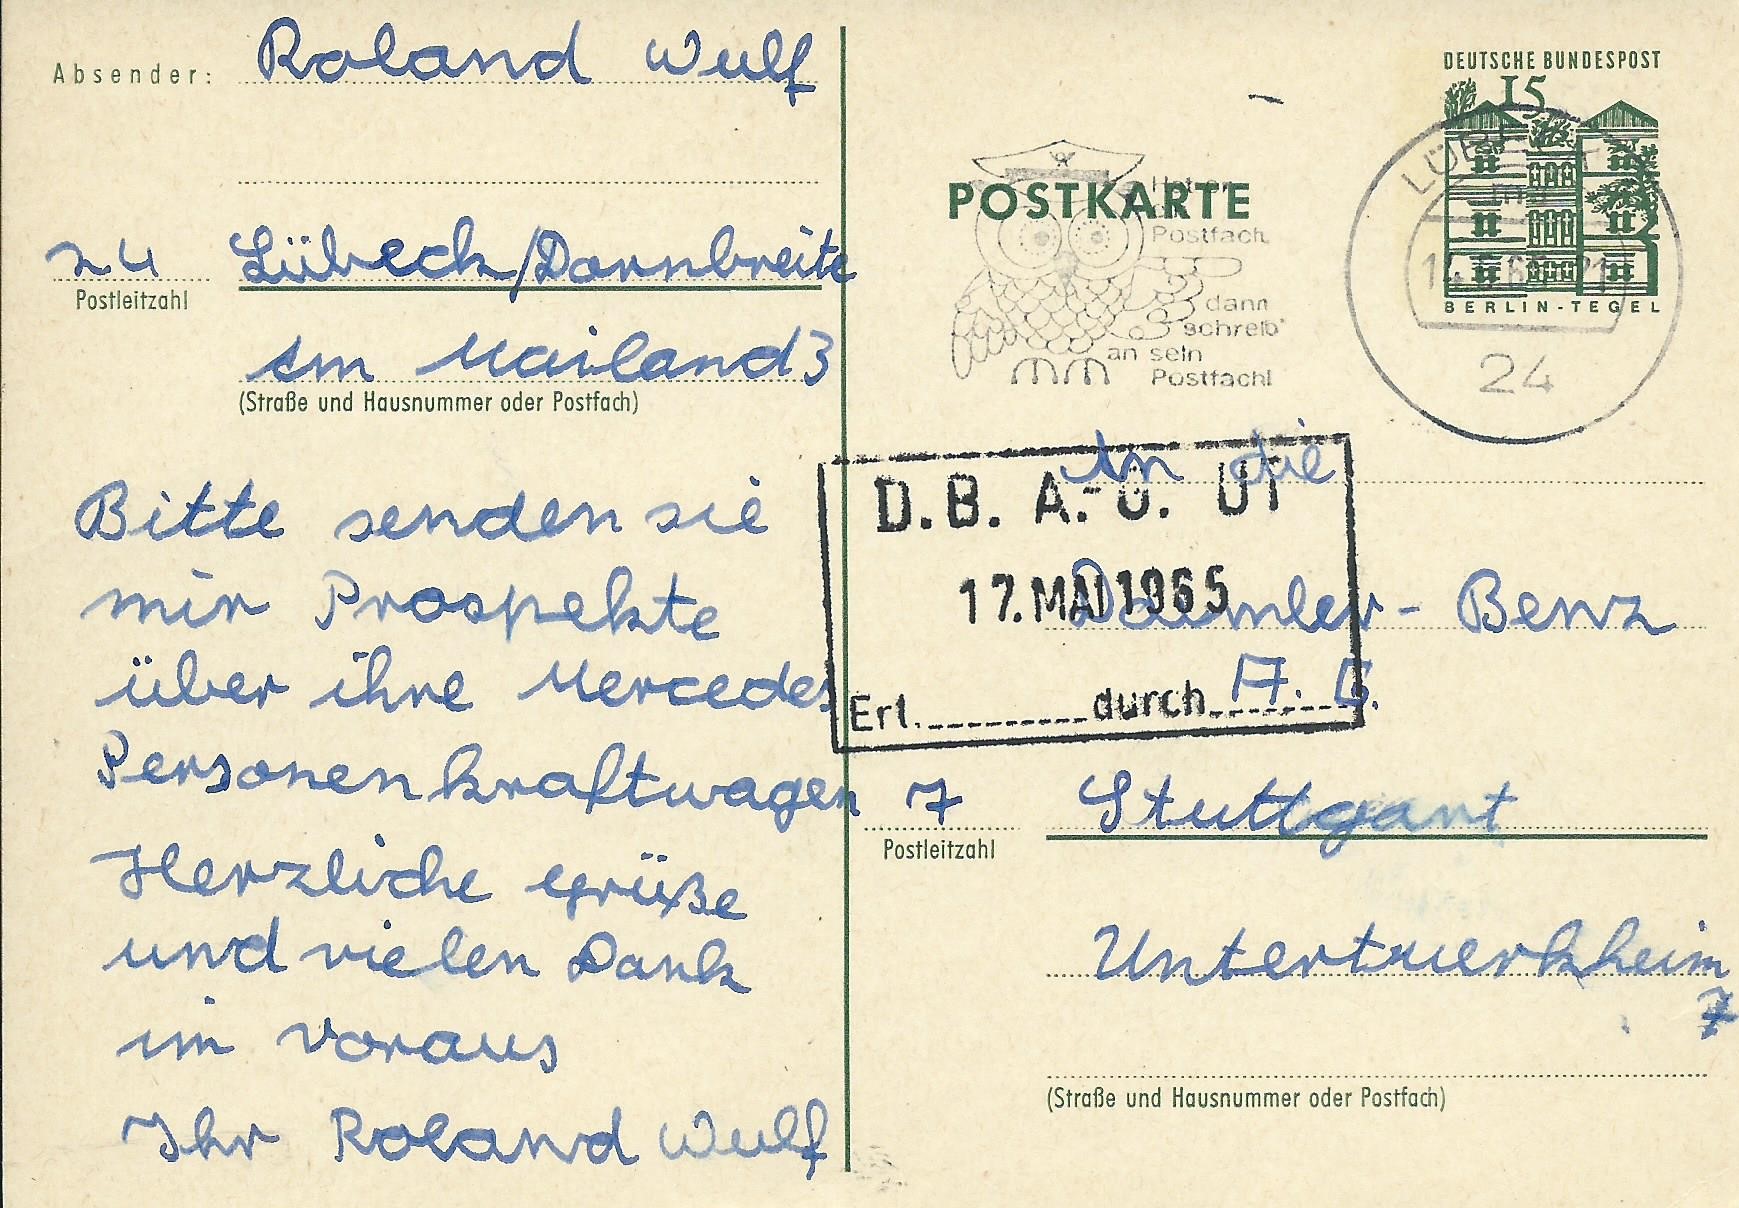 Absender: Roland Wulf
24 Lübeck/Dornbreite
Postleitzahl
Am Mailand 3
(Straße und Hausnummer oder Postfach)
Bitte senden sie
mir Prospekte
über ihre Mercedes
Personenkraftwagen
Herzliche Grüße
und vielen Dank
im voraus
Ihr Roland Wulf
DEUTSCHE BUNDESPOST
15
BERLIN-TEGEL
POSTKARTE
Postfach,
dann
schreib'
an sein
Postfach!
24
An die
D.B. A.-O. UT
17. MAI 1965
Daimler-Benz
A. G.
Erl. durch
7 Stuttgart
Postleitzahl
Untertuerkheim
7
(Straße und Hausnummer oder Postfach)